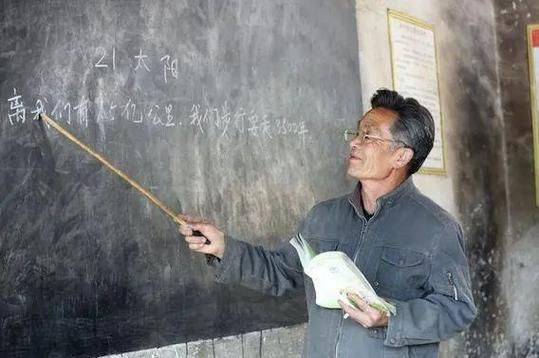 21 太阳
离我们有1.5亿公里.我们步行要走3500年